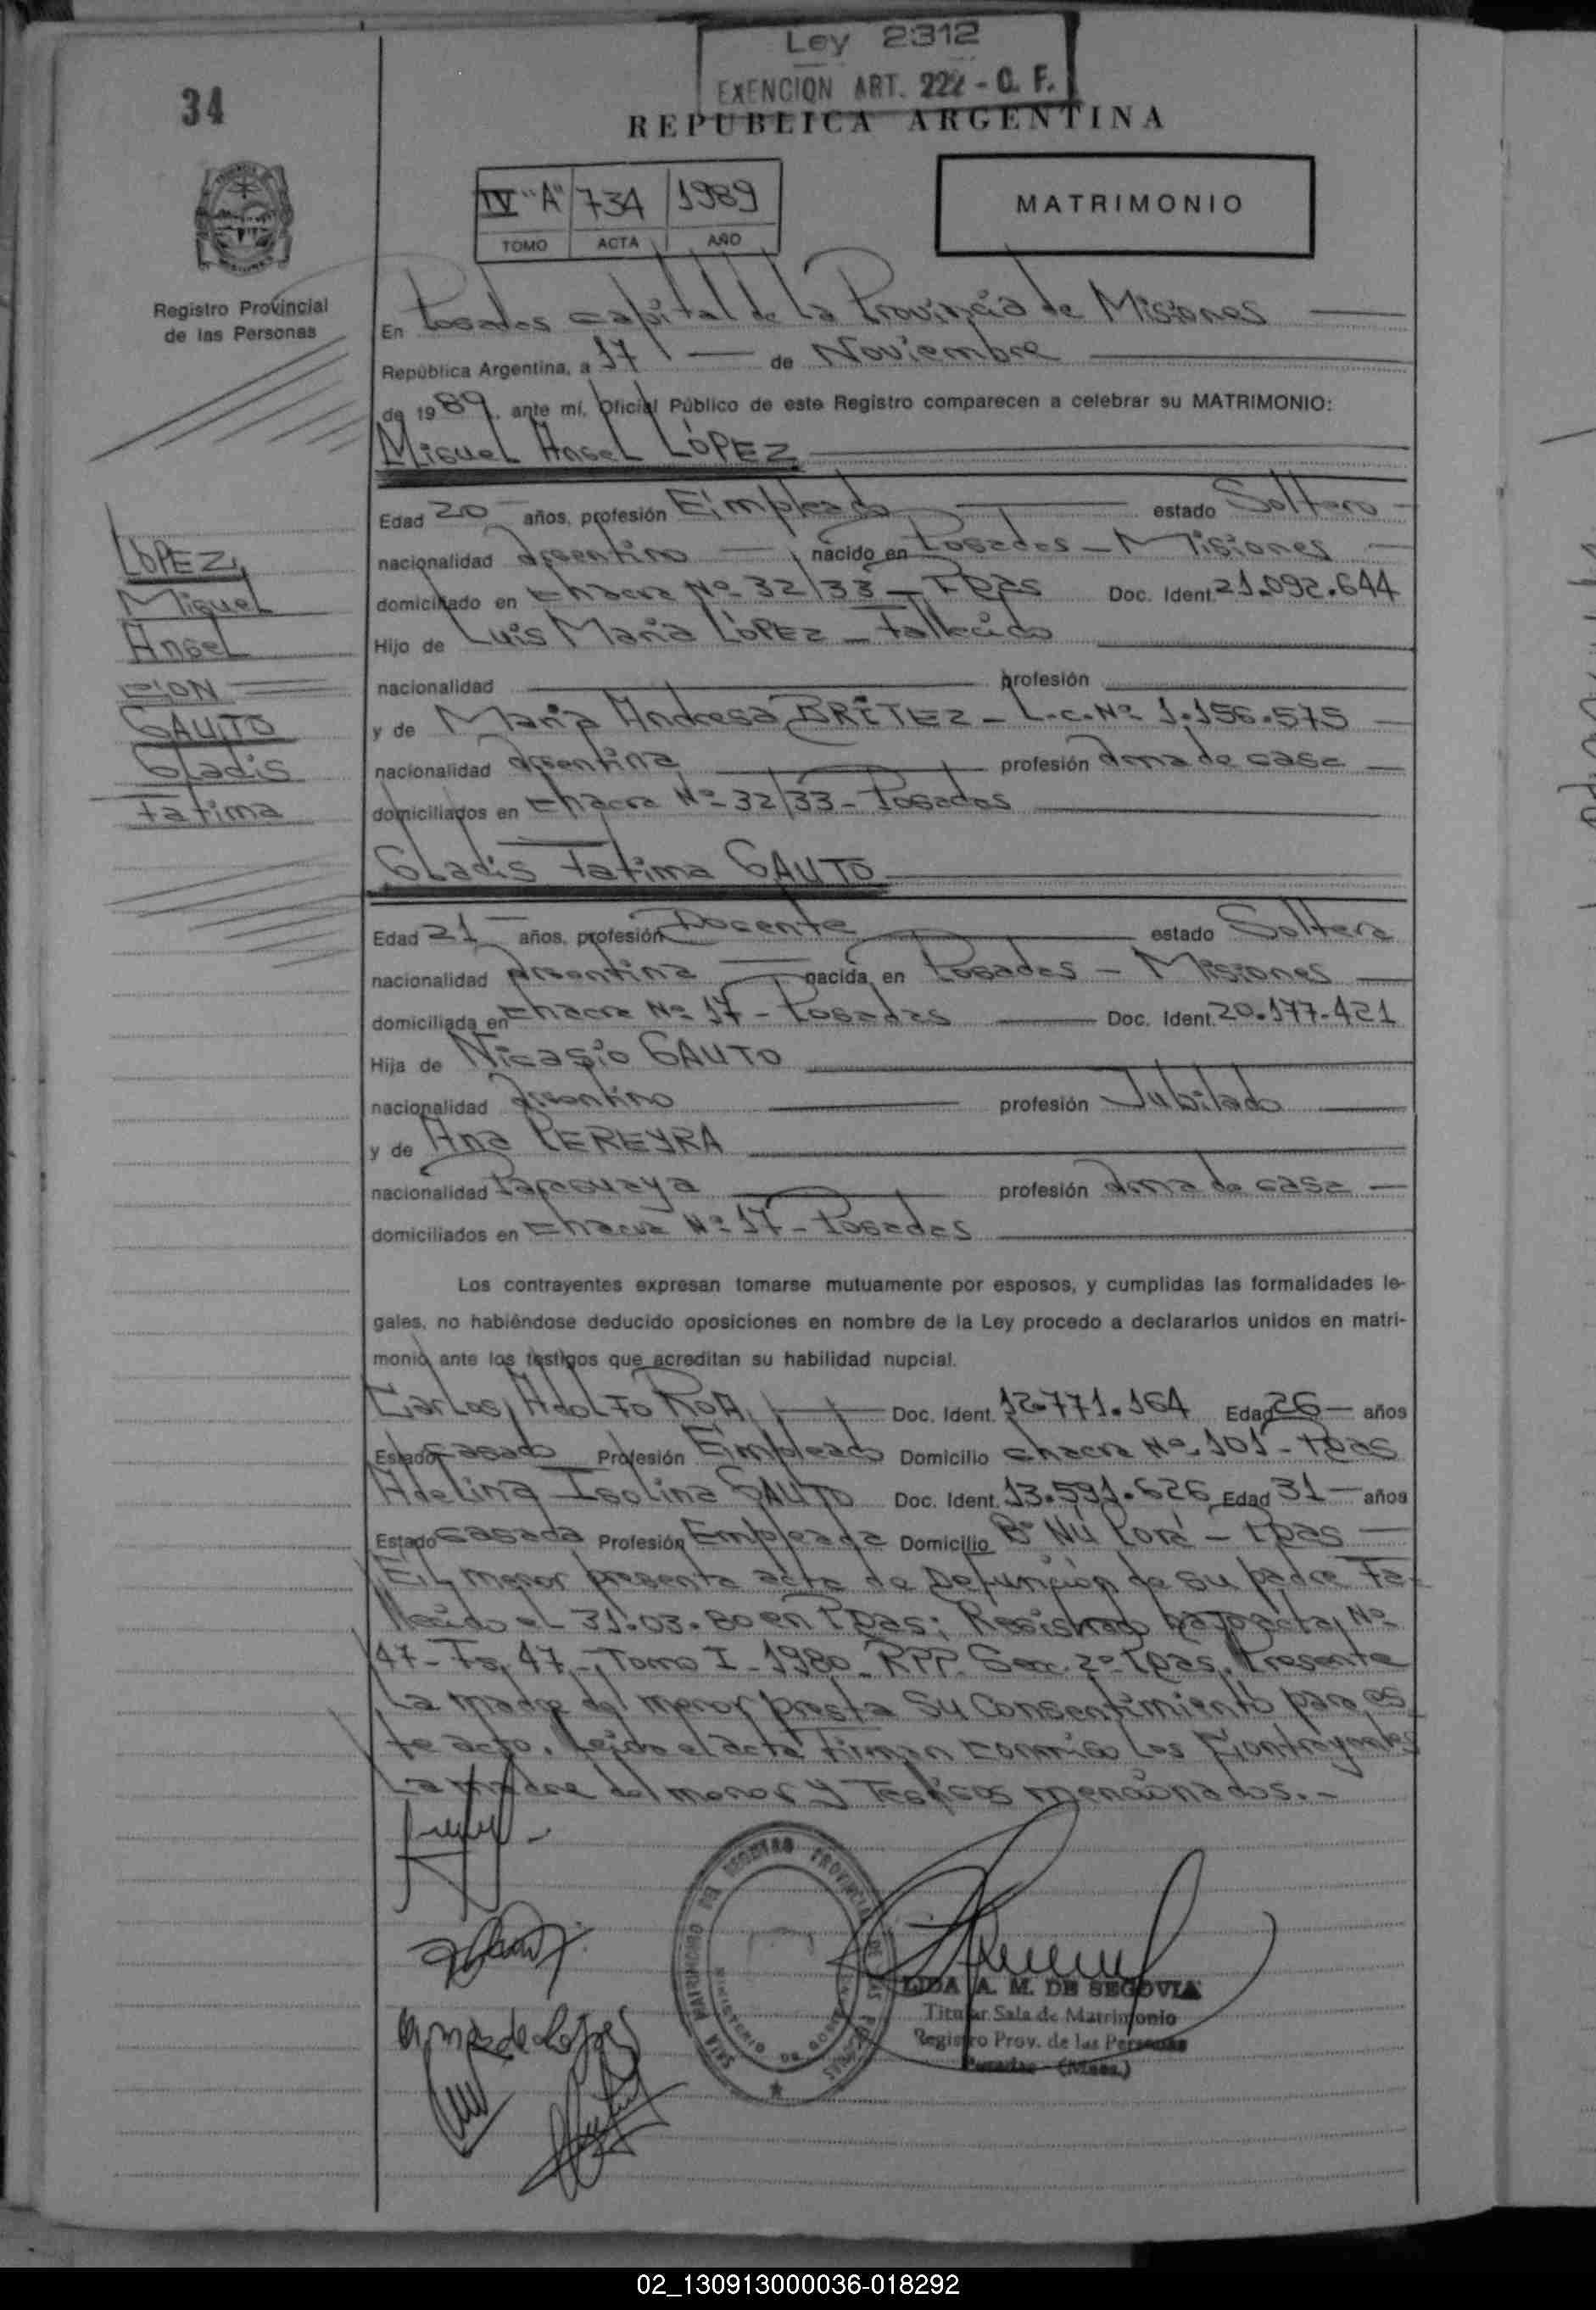 Ley 2312
EXENCION ART. 222 - C. F.
34
REPUBLICA ARGENTINA
IV "A" 734 1989
TOMO ACTA AÑO
MATRIMONIO
Registro Provincial
de las Personas
En Posadas capital de la Provincia de Misiones
República Argentina, a 17 de Noviembre
de 1989, ante mí, Oficial Público de este Registro comparecen a celebrar su MATRIMONIO:
Miguel Angel LÓPEZ
Edad 20 años, profesión Empleado estado Soltero
nacionalidad Argentino nacido en Posadas - Misiones
domiciliado en Chacra Nº 32/33 - Pdas Doc. Ident. 21.092.644
Hijo de Luis María LÓPEZ - Fallecido
nacionalidad profesión
y de María Andresa BRÍTEZ - L.C. Nº 1.156.575
nacionalidad Argentina profesión Ama de casa
domiciliados en Chacra Nº 32/33 - Posadas
LÓPEZ,
Miguel
Angel
CON
GAUTO
Gladis
Fatima
Gladis Fatima GAUTO
Edad 21 años, profesión Docente estado Soltera
nacionalidad Argentina nacida en Posadas - Misiones
domiciliada en Chacra Nº 17 - Posadas Doc. Ident. 20.177.421
Hija de Nicasio GAUTO
nacionalidad Argentino profesión Jubilado
y de Ana PEREYRA
nacionalidad Paraguaya profesión Ama de casa
domiciliados en Chacra Nº 17 - Posadas
Los contrayentes expresan tomarse mutuamente por esposos, y cumplidas las formalidades le-
gales, no habiéndose deducido oposiciones en nombre de la Ley procedo a declararlos unidos en matri-
monio ante los testigos que acreditan su habilidad nupcial.
Carlos Adolfo ROA Doc. Ident. 12.771.164 Edad 26 años
Estado Casado Profesión Empleado Domicilio Chacra Nº 101 - Pdas
Adelina Isolina GAUTO Doc. Ident. 13.591.626 Edad 31 años
Estado Casada Profesión Empleada Domicilio Bº Ñu Porá - Pdas
El menor presenta acta de Defunción de su padre Fa-
llecido el 31.03.80 en Pdas; Registrado bajo acta Nº
47 - Fº 47 - Tomo I - 1980 - RPP. Secc. 2º Pdas. Presente
la madre del menor presta su consentimiento para es-
te acto. Leída el acta Firman conmigo los Contrayentes
La madre del menor y Testigos mencionados. -
SALA MATRIMONIO DEL REGISTRO PROVINCIAL DE LAS PERSONAS
MINISTERIO DE GOBIERNO
LIDA A. M. DE SEGOVIA
Titular Sala de Matrimonio
Registro Prov. de las Personas
Posadas - (Mnes.)
02_130913000036-018292